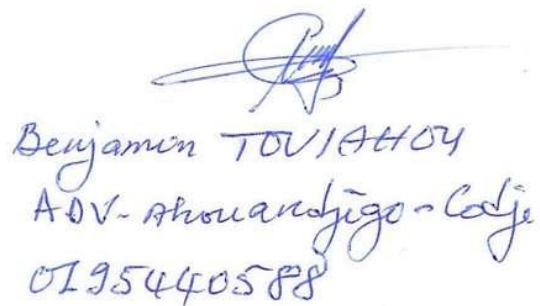 Benjamin TOVIAHOU
ADV-Ahouandjigo-Codji
0195440588